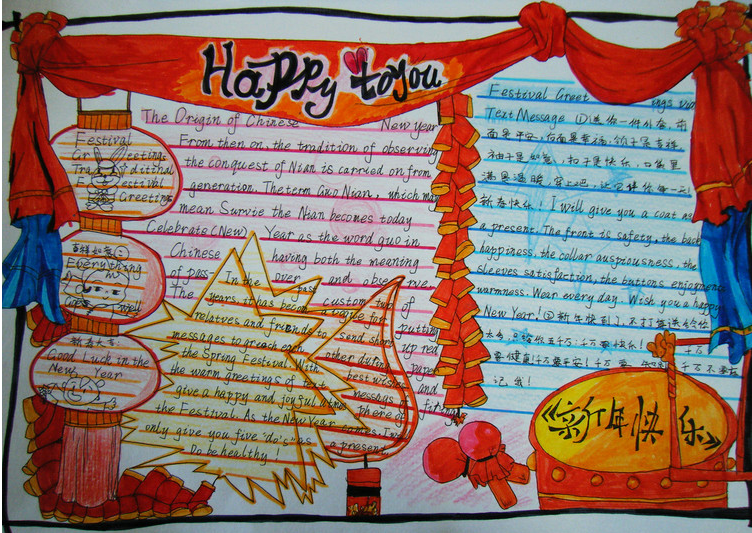 Happy to you
The Origin of Chinese New year
From then on, the tradition of observing
the conquest of Nian is carried on from
generation. The term Guo Nian, which may
mean Survie the Nian becomes today
Celebrate (New) Year as the word guo in
Chinese having both the meaning
of pass over and observe.
The custom of
putting
up red
paper
and
firing
In the past
years, it has become
relatives and friends to send short
messages to greach
the Spring Festival. With other during
the warm greetings of best wishes
give a happy and joyful atmosphere of
the Festival. As the New Year comes, I
only give you five "do's" as a present
Do be healthy!
Festival
Greetings
Festival
Greeting
Everything
well
新春大吉:
Good Luck in the
New Year
Festival Greet
Text Message ①送你一件外套,前
面是平安,后面是幸福,领子是吉祥,
袖子是如意,扣子是快乐,口袋里
满是温暖,穿上吧,
新春快乐! I will give you a coat as
a present. The front is safety, the back
happiness, the collar auspiousness, the
sleeves satisfaction, the buttons enjoyment
warmness. Wear every day. Wish you a happy
New Year! ②新年快到了,不打算送给你
太多,只给你五千万:千万要快乐!千万
要健康!千万要平安!千万要 千万不要忘
记我!
《新年快乐》